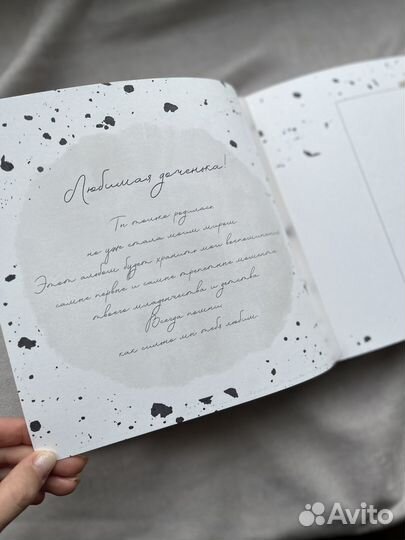 Любимая доченька!
Ты только родилась
но уже стала моим миром
Этот альбом будет хранить мои воспоминания
самые первые и самые трепетные моменты
твоего младенчества и детства
Всегда помни,
как сильно мы тебя любим
Avito